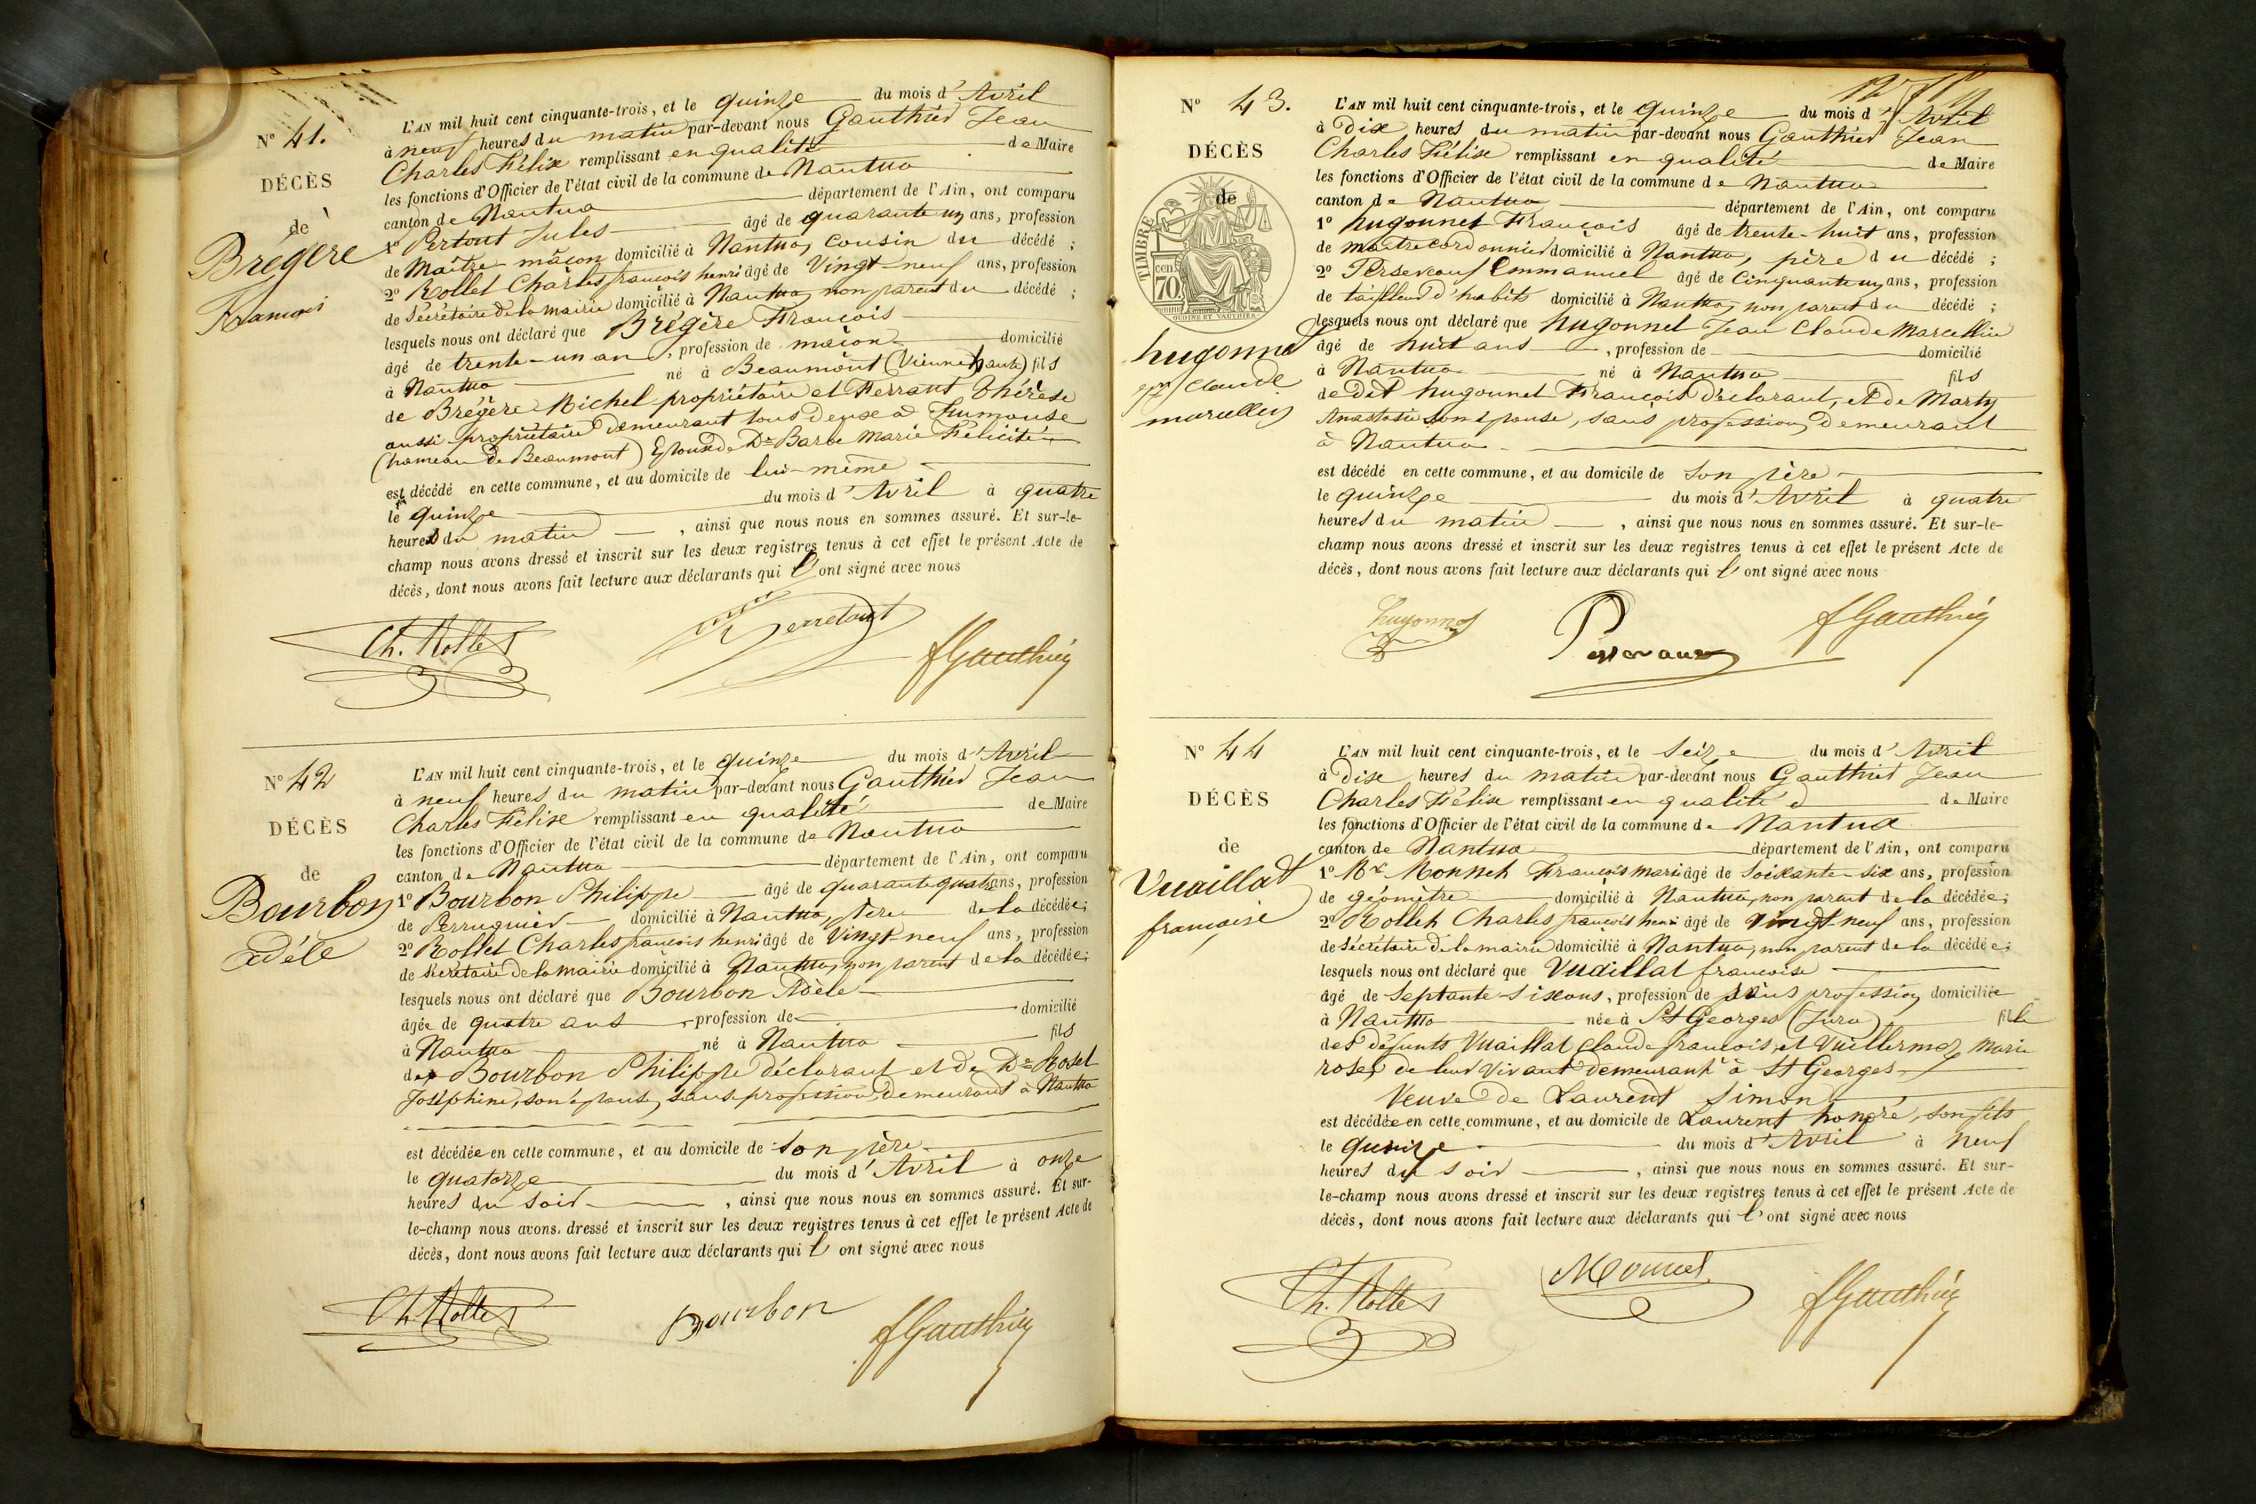 N° 41.
DÉCÈS
de
Brégère
François
L'AN mil huit cent cinquante-trois, et le quinze du mois d'Avril
à neuf heures du matin par-devant nous Gauthier Jean
Charles Félix remplissant en qualité de Maire
les fonctions d'Officier de l'état civil de la commune de Nantua
canton de Nantua département de l'Ain, ont comparu
1° Pertout Jules âgé de quarante un ans, profession
de Maître maçon domicilié à Nantua, cousin du décédé ;
2° Rollet Charles françois henri âgé de Vingt-neuf ans, profession
de Sécrétaire de la mairie domicilié à Nantua, non parent du décédé ;
lesquels nous ont déclaré que Brégère François
âgé de trente-un an, profession de maçon domicilié
à Nantua né à Beaumont (Vienne haute) fils
de Brégère Michel propriétaire et Ferrant Thérèse
aussi propriétaire demeurant tous deux à
(hameau de Beaumont) Epoux de De Barbe Marie Félicité
est décédé en cette commune, et au domicile de lui-même
le quinze du mois d'Avril à quatre
heures du matin, ainsi que nous nous en sommes assuré. Et sur-le-
champ nous avons dressé et inscrit sur les deux registres tenus à cet effet le présent Acte de
décès, dont nous avons fait lecture aux déclarants qui l'ont signé avec nous
Ch. Rollet Perretout fGauthier
N° 42
DÉCÈS
de
Bourbon
adèle
L'AN mil huit cent cinquante-trois, et le quinze du mois d'Avril
à neuf heures du matin par-devant nous Gauthier Jean
Charles Félix remplissant en qualité de Maire
les fonctions d'Officier de l'état civil de la commune de Nantua
canton de Nantua département de l'Ain, ont comparu
1° Bourbon Philippe âgé de quarante quatre ans, profession
de Perruquier domicilié à Nantua, père de la décédée;
2° Rollet Charles françois henri âgé de Vingt-neuf ans, profession
de Sécrétaire de la mairie domicilié à Nantua, non parent de la décédée;
lesquels nous ont déclaré que Bourbon Adèle
âgée de quatre ans profession de domicilié
à Nantua né à Nantua fils
de Bourbon Philippe déclarant et de De Rosel
Joséphine, son épouse, sans profession, demeurant à Nantua
est décédée en cette commune, et au domicile de son père
le quatorze du mois d'Avril à onze
heures du soir, ainsi que nous nous en sommes assuré. Et sur-
le-champ nous avons dressé et inscrit sur les deux registres tenus à cet effet le présent Acte de
décès, dont nous avons fait lecture aux déclarants qui l'ont signé avec nous
Ch. Rollet Bourbon fGauthier
N° 43.
DÉCÈS
de
TIMBRE
70
hugonnet
jn claude
marcellin
L'AN mil huit cent cinquante-trois, et le quinze du mois d'Avril
à Dix heures du matin par-devant nous Gauthier Jean
Charles Félix remplissant en qualité de Maire
les fonctions d'Officier de l'état civil de la commune de Nantua
canton de Nantua département de l'Ain, ont comparu
1° hugonnet François âgé de trente-huit ans, profession
de maître cordonnier domicilié à Nantua, père du décédé ;
2° Emmanuel âgé de cinquante un ans, profession
de tailleur d'habits domicilié à Nantua, non parent du décédé ;
lesquels nous ont déclaré que hugonnet Jean Claude Marcellin
âgé de huit ans, profession de domicilié
à Nantua né à Nantua fils
de dit hugonnet François déclarant, et de Marty
Anastasie son épouse, sans profession, demeurant
à Nantua
est décédé en cette commune, et au domicile de son père
le quinze du mois d'Avril à quatre
heures du matin, ainsi que nous nous en sommes assuré. Et sur-le-
champ nous avons dressé et inscrit sur les deux registres tenus à cet effet le présent Acte de
décès, dont nous avons fait lecture aux déclarants qui l'ont signé avec nous
hugonnet fGauthier
N° 44
DÉCÈS
de
Vuaillat
françoise
L'AN mil huit cent cinquante-trois, et le Seize du mois d'Avril
à Dix heures du matin par-devant nous Gauthier Jean
Charles Félix remplissant en qualité de Maire
les fonctions d'Officier de l'état civil de la commune de Nantua
canton de Nantua département de l'Ain, ont comparu
1° Mr Monnet François marie âgé de soixante-six ans, profession
de géomètre domicilié à Nantua, non parent de la décédée;
2° Rollet Charles françois henri âgé de vingt-neuf ans, profession
de sécrétaire de la mairie domicilié à Nantua, non parent de la décédée;
lesquels nous ont déclaré que Vuaillat françoise
âgé de septante-six ans, profession de sans profession domiciliée
à Nantua née à St Georges (Jura) fille
des défunts Vuaillat Claude françois, et Vuillermoz Marie
rose, de leur vivant demeurant à St Georges
Veuve de Laurent Simon
est décédée en cette commune, et au domicile de Laurent honoré, son fils
le quinze du mois d'Avril à neuf
heures du soir, ainsi que nous nous en sommes assuré. Et sur-
le-champ nous avons dressé et inscrit sur les deux registres tenus à cet effet le présent Acte de
décès, dont nous avons fait lecture aux déclarants qui l'ont signé avec nous
Ch. Rollet Monnet fGauthier